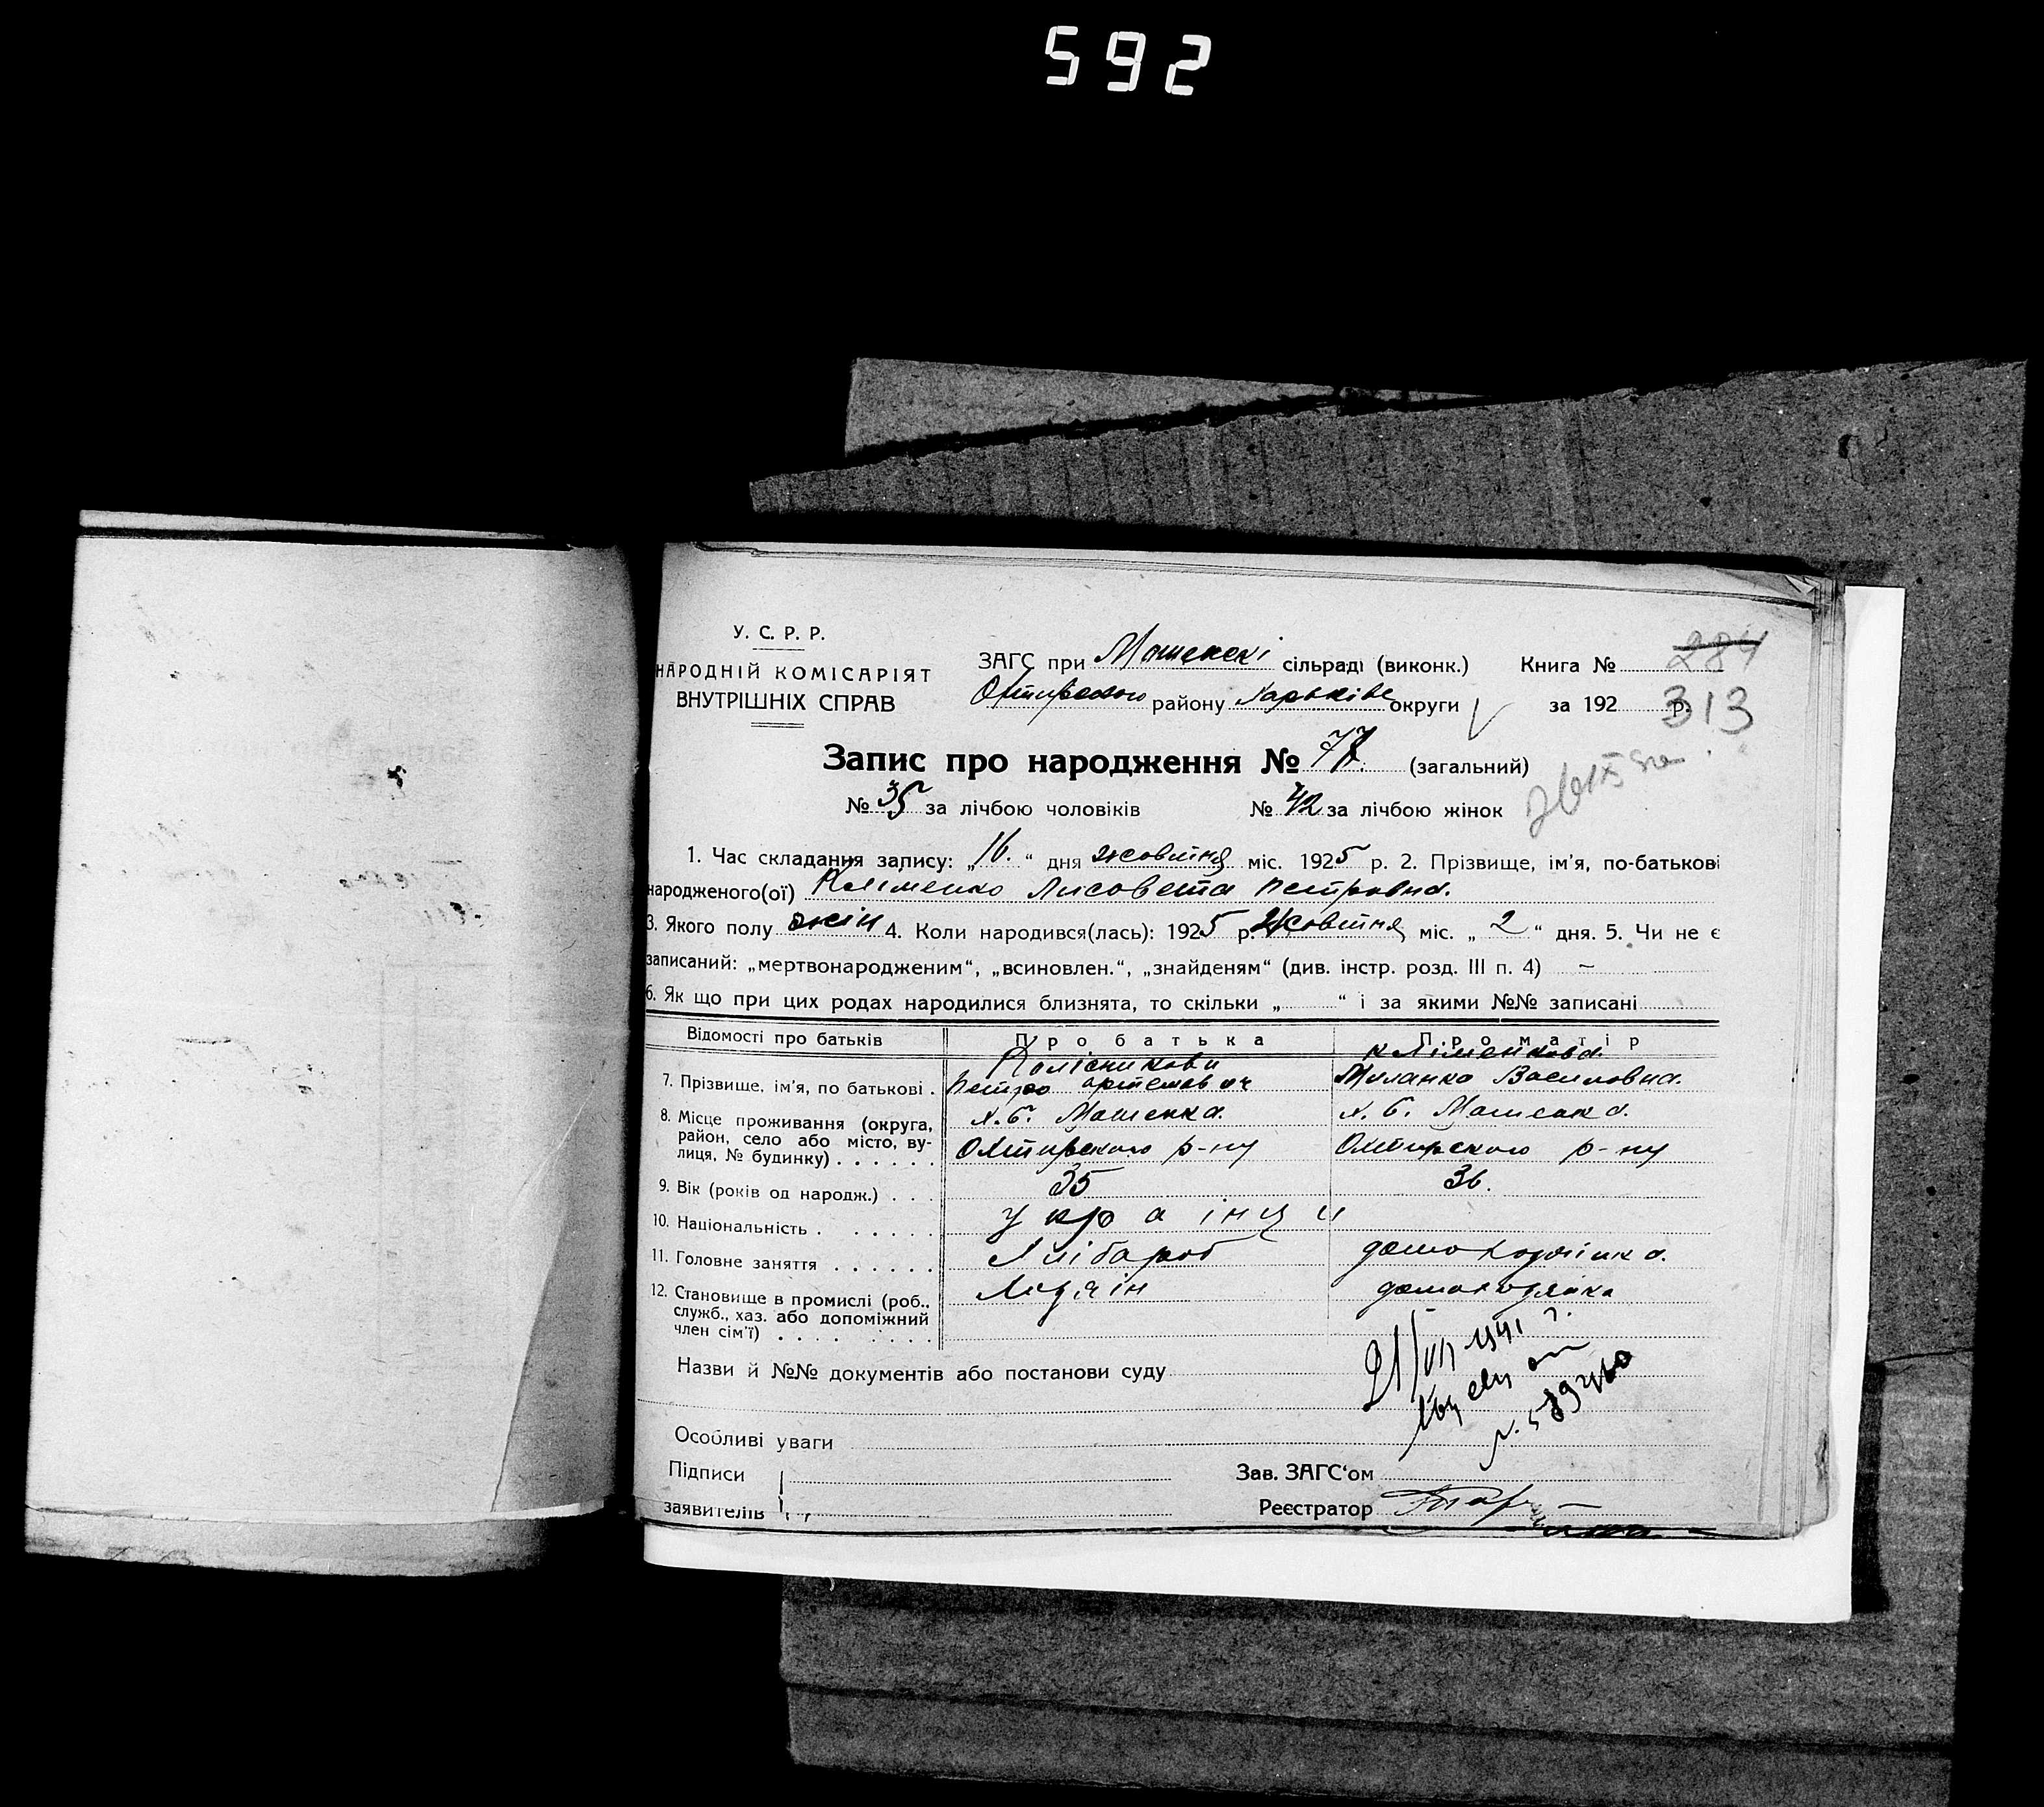 592
У. С. Р. Р.
НАРОДНІЙ КОМІСАРІЯТ
ВНУТРІШНІХ СПРАВ
ЗАГС при Мошенскі сільраді (виконк.) Книга № 284
Охтирского району Харьківс округи за 192 р. 313
Запис про народження № 77. (загальний)
№ 35 за лічбою чоловіків № 42 за лічбою жінок
1. Час складання запису: „16.“ дня жовтня міс. 1925 р. 2. Прізвище, ім'я, по-батькові
народженого(ої) Кліменко Лисовета Петровна.
3. Якого полу жін 4. Коли народився(лась): 1925 р. Жовтня міс. „2“ дня. 5. Чи не є
записаний: „мертвонародженим“, „всиновлен.“, „знайденям“ (див. інстр. розд. III п. 4) –
6. Як що при цих родах народилися близнята, то скільки „ “ і за якими №№ записані
Відомості про батьків Про батька Про матір
7. Прізвище, ім'я, по батькові . Петро Артемович Кліменкова. Миланка Василовна.
8. Місце проживання (округа, район, село або місто, вулиця, № будинку) . . . . . . х. Б. Мошенка. х. Б. Мошенка.
Охтирского р-ну Охтирского р-ну
9. Вік (років од народж.) . . . 35 36.
10. Національність . . . . . . українци
11. Головне заняття . . . . . . Хлібароб домохозяінка.
12. Становище в промислі (роб., служб., хаз. або допоміжний член сім'ї) . . . . . . . . Хозяін домохозяйка
Назви й №№ документів або постанови суду
21/VII 1941 г.
Особливі уваги
Підписи
заявителів
Зав. ЗАГС'ом
Реєстратор